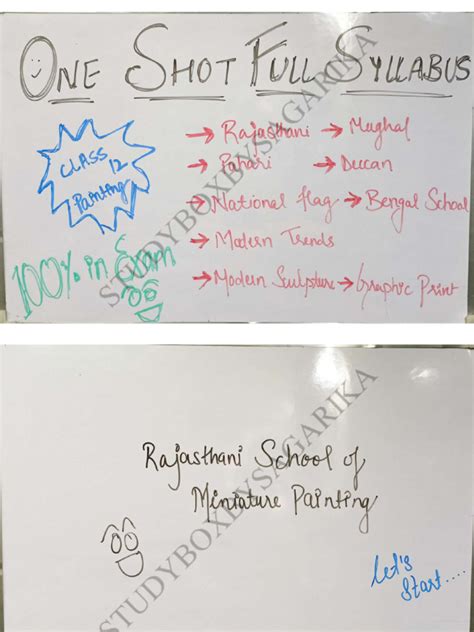 ONE SHOT FULL SYLLABUS
CLASS 12
Painting
→ Rajasthani → Mughal
→ Pahari → Deccan
→ National flag → Bengal School
→ Modern Trends
→ Modern Sculpture → Graphic Print
100% in Exam
STUDYBOXBYSAGARIKA
Rajasthani School of
Miniature Painting
Let's
Start....
STUDYBOXBYSAGARIKA